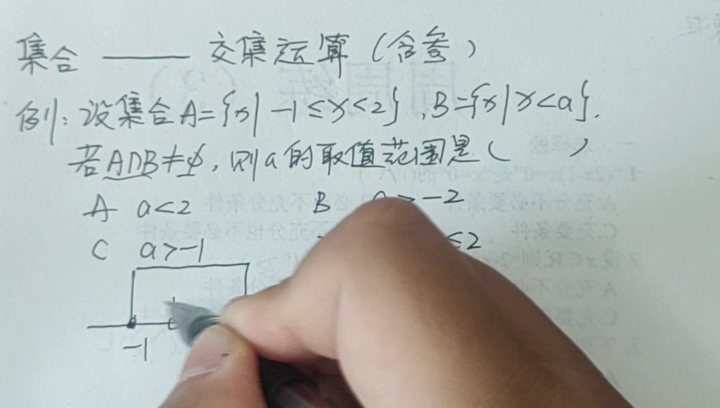 集合 —— 交集运算(含参)
例:设集合A={x|-1≤x<2},B={x|x<a}.
若A∩B≠ϕ,则a的取值范围是( )
A a<2 B a>-2
C a>-1 ≤2
-1